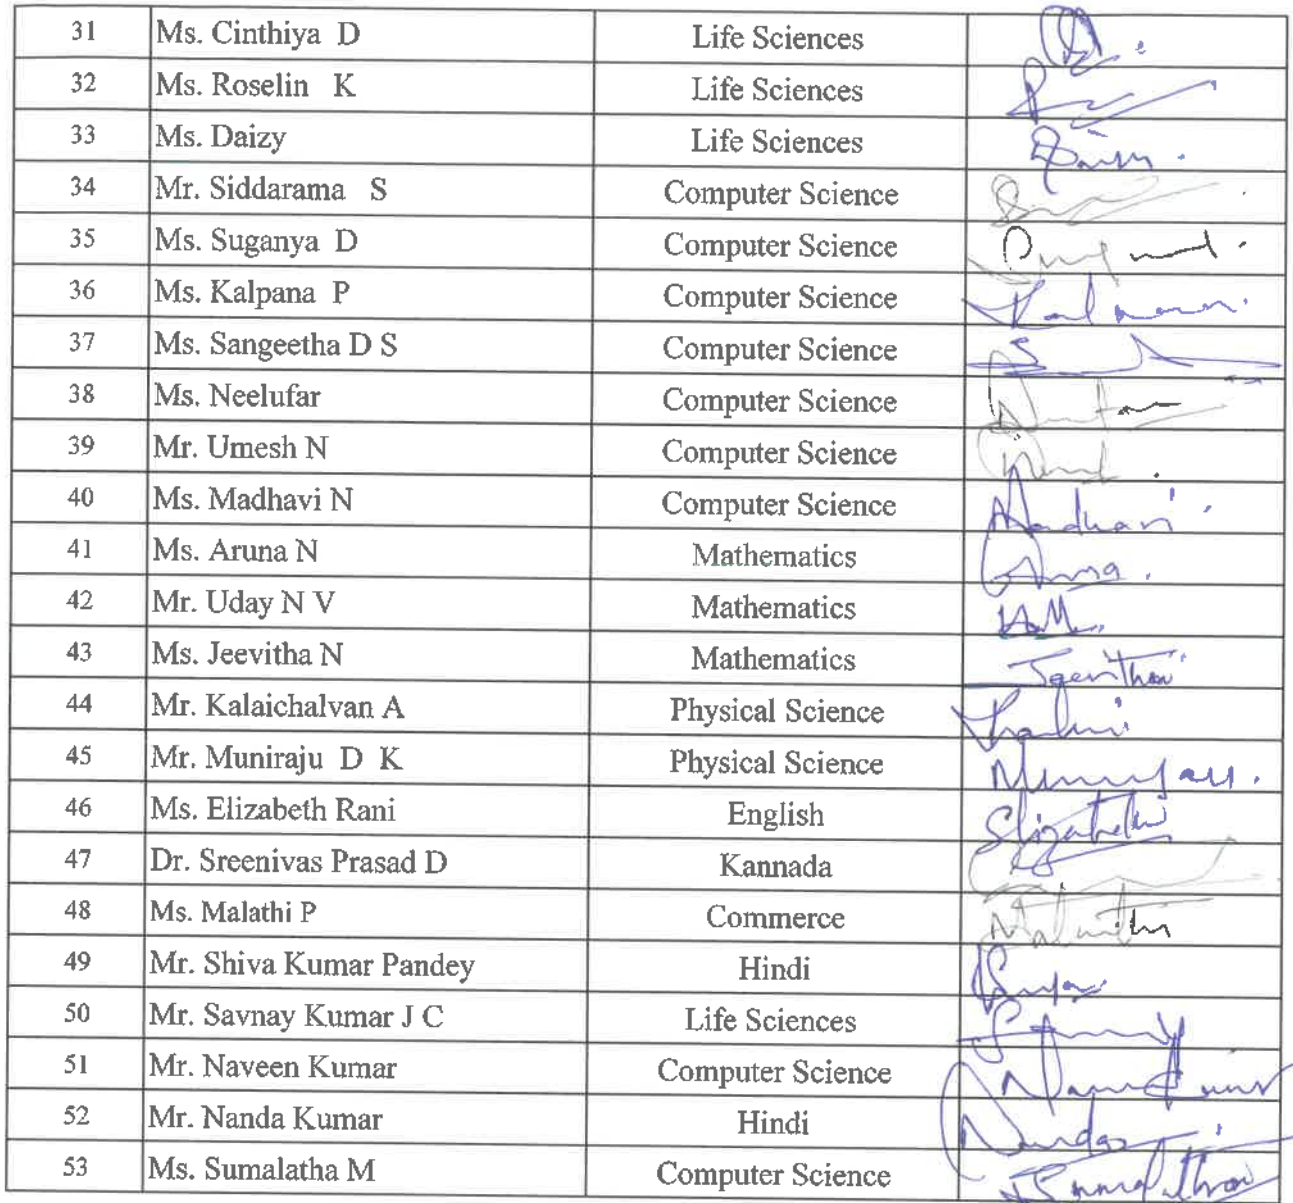 31 Ms. Cinthiya D Life Sciences
32 Ms. Roselin K Life Sciences
33 Ms. Daizy Life Sciences
34 Mr. Siddarama S Computer Science
35 Ms. Suganya D Computer Science
36 Ms. Kalpana P Computer Science
37 Ms. Sangeetha D S Computer Science
38 Ms. Neelufar Computer Science
39 Mr. Umesh N Computer Science
40 Ms. Madhavi N Computer Science Madhavi
41 Ms. Aruna N Mathematics
42 Mr. Uday N V Mathematics
43 Ms. Jeevitha N Mathematics
44 Mr. Kalaichalvan A Physical Science
45 Mr. Muniraju D K Physical Science
46 Ms. Elizabeth Rani English Elizabeth
47 Dr. Sreenivas Prasad D Kannada
48 Ms. Malathi P Commerce
49 Mr. Shiva Kumar Pandey Hindi
50 Mr. Savnay Kumar J C Life Sciences
51 Mr. Naveen Kumar Computer Science
52 Mr. Nanda Kumar Hindi
53 Ms. Sumalatha M Computer Science